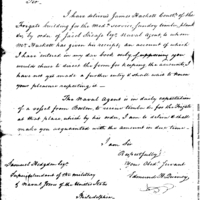 Sir,
I have deliver'd James Hackett Constr. of the
Frigate building for the Wars. service, sundry timber, plank
&c. by order of Jacob Sheafe Esqr. Naval Agent, to whom
Mr. Hackett has given his receipts, an account of which
I have entered in my day book only, supposing you
would have to direct the form for keeping the accounts, I
have not yet made a further entry & shall wait to know
your pleasure respecting it.
The Naval Agent is in daily expectation
of a vessel from Boston, to receive timber &c. for the Frigate
at that place, which by his order, I am to deliver & shall
make you acquainted with the amount in due time.
I am Sir
Respectfully
Your obt. Servant
Samuel Hodgdon Esqr.
Superintendent of the military
& Naval Stores of the United States
Philadelphia